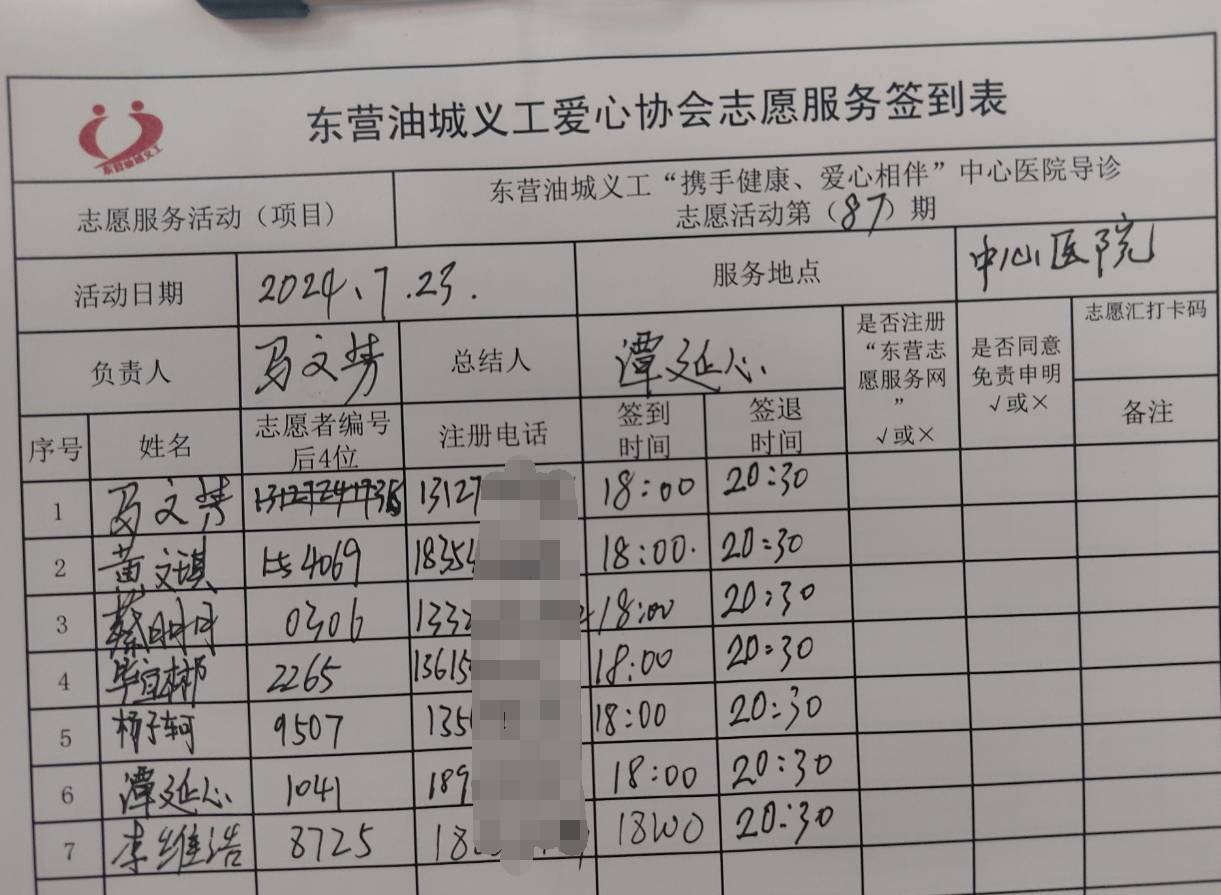 东营油城义工爱心协会志愿服务签到表
东营油城义工
志愿服务活动（项目）
东营油城义工“携手健康、爱心相伴”中心医院导诊
志愿活动第（87）期
活动日期 2024、7.23. 服务地点 中心医院
负责人 马文芳 总结人 谭延心
是否注册
“东营志
愿服务网
”
√或×
是否同意
免责申明
√或×
志愿汇打卡码
备注
序号 姓名
志愿者编号
后4位
注册电话
签到
时间
签退
时间
1 马文芳 13127 18:00 20:30
2 黄文琪 4069 18354 18:00. 20:30
3 0306 1332 18:00 20:30
4 毕宜彬 2265 13615 18:00 20:30
5 杨子轲 9507 135 18:00 20:30
6 谭延心 1041 189 18:00 20:30
7 李维浩 8725 18 18:00 20:30